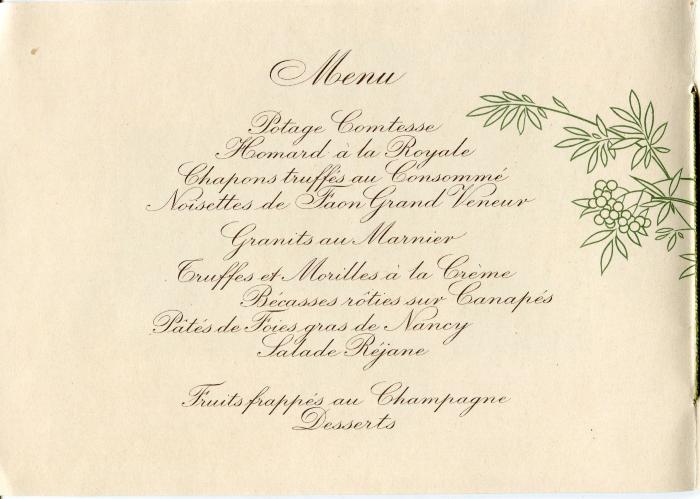 Menu
Potage Comtesse
Homard à la Royale
Chapons truffés au Consommé
Noisettes de Faon Grand Veneur
Granits au Marnier
Truffes et Morilles à la Crème
Bécasses rôties sur Canapés
Pâtés de Foies gras de Nancy
Salade Réjane
Fruits frappés au Champagne
Desserts